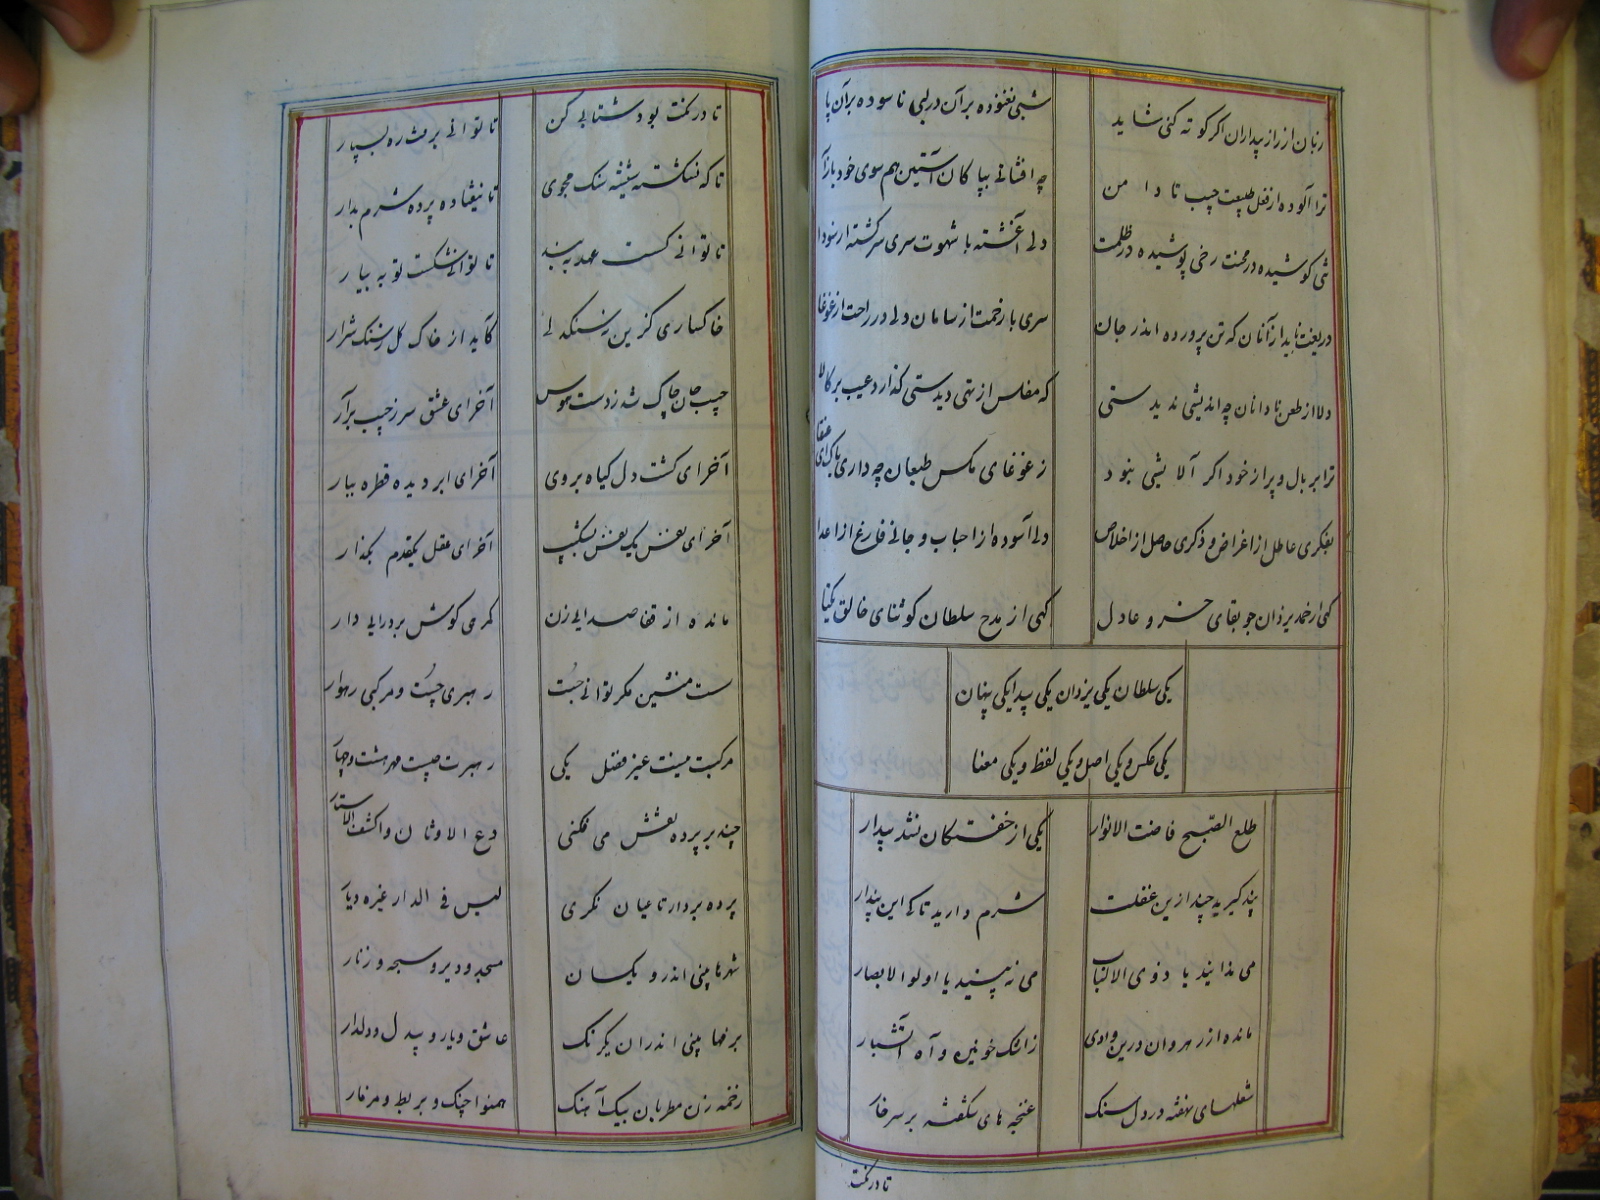 زبان از راز بیداران اگر کوته کنی شاید شبی نغنوده بر آن در لبی ناسوده بر آن پا
ترا آلوده از فعل طبیعت جیب تا دامن چه افشانی بپاکان آستین هم سوی خود بازآ
تنی کوشیده در محنت رخی پوشیده در ظلمت دلی آغشته با شهوت سری سرگشته از سودا
دریغت ناید از آنان که تن پرورده اندر جان سری با زحمت از سامان دلی در راحت از غوغا
دلا از طعن نادانان چه اندیشی ندیدستی که مفلس از تهی دیدستی گذارد عیب بر کالا
ترا بر بال و پر از خود اگر آلایشی نبود ز غوغای مگس طبعان چه داری باک ای عنقا
بفکری عاطل از اغراض و ذکری حاصل از اخلاص دلی آسوده از احباب و جانی فارغ از اعدا
گهی از حمد یزدان جو بقای خسرو عادل گهی از مدح سلطان گو ثنای خالق یکتا
یکی سلطان یکی یزدان یکی پیدا یکی پنهان
یکی عکس و یکی اصل و یکی لفظ و یکی معنا
طلع الصبح فاضت الانوار یکی از خفتگان نشد بیدار
پند گیرید چند ازین غفلت شرم دارید تا کی این پندار
می ندانید یا ذوی الالباب می نه بینید یا اولو الابصار
مانده از رهروان درین وادی ز اشک خونین و آه آتشبار
شعلهای نهفته در دل سنگ غنچه های شکفته بر سر خار
تا درنگت
تا درنگت بود شتابی کن تا توانی بره فشاره بسپار
تا که نشکسته شیشه سنگ مجوی تا نیفتاده پرده شرم بدار
تا توانی گسست عهد ببند تا توانی شکست توبه بیار
خاکساری گزین نه سنگدلی کآید از خاک گل ز سنگ شرار
جیب جان چاک شد ز دست هوس آخر ای عشق سر ز جیب برآر
آخر ای کشت دل گیاه بروی آخر ای ابر دیده قطره ببار
آخر ای نفس یک نفس بشکیب آخر ای عقل یکقدم بگذار
مانده از قفا صدایی زن گمرهی گوش بر درایی دار
سست منشین مگر توانی جست رهبری چست و مرکبی رهوار
مرکبت نیست غیر فضل یکی رهبرت چیست مهر هشت و چهار
چند بر پرده نقش می فکنی دع الاوثان و اکشف الاستار
پرده بردار تا عیان نگری لیس فی الدار غیره دیار
شهرها بینی اندرو یکسان مسجد و دیر و سبحه و زنار
بزمها بینی اندران یکرنگ عاشق و یار و بیدل و دلدار
زخمه زن مطربان بیک آهنگ همنوا چنگ و بربط و مزمار